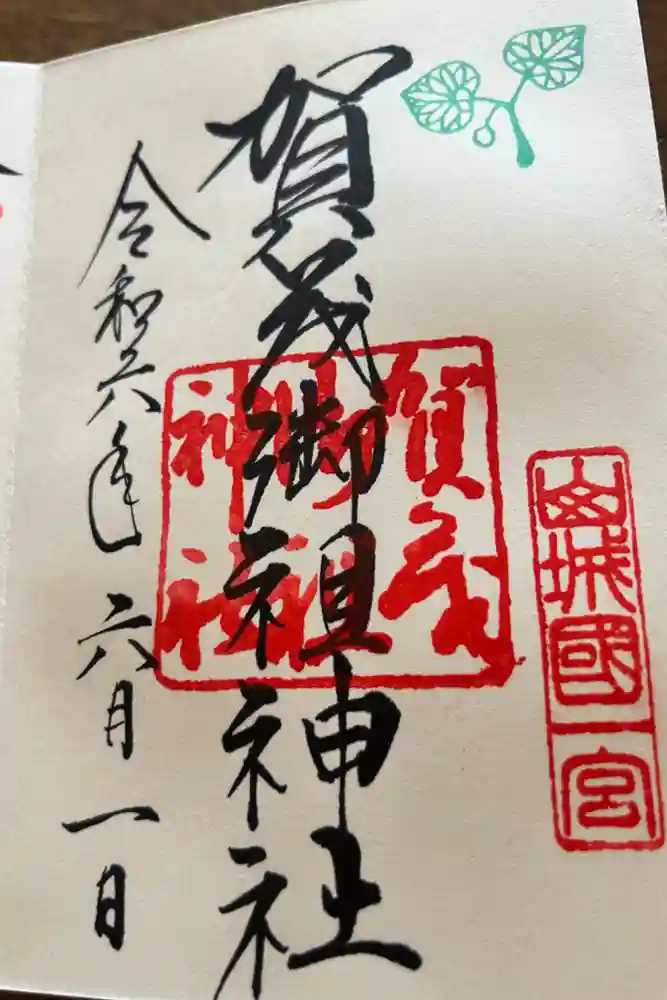 山城國一宮
賀茂御祖神社
賀茂御祖神社
令和六年六月一日